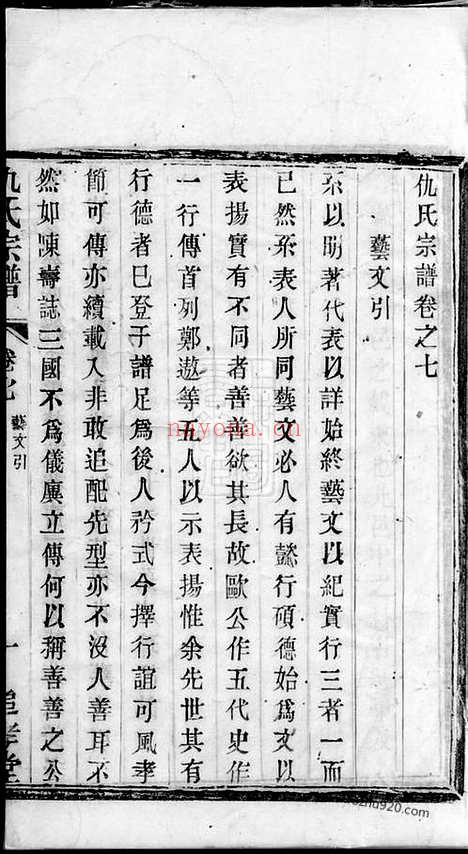 仇氏宗譜卷之七
藝文引
系以明著代表以詳始終藝文以紀實行三者一而
已然系表人所同藝文必人有懿行碩德始爲文以
表揚實有不同者善善欲其長故歐公作五代史作
一行傳首列鄭遨等五人以示表揚惟余先世其有
行德者已登于譜足爲後人矜式今擇行誼可風孝
節可傳亦續載入非敢追配先型亦不沒人善耳不
然如陳壽誌三國不爲儀廙立傳何以稱善善之公
仇氏宗譜 卷七 藝文引 一 追孝堂
nayona.cn
zhu920.com